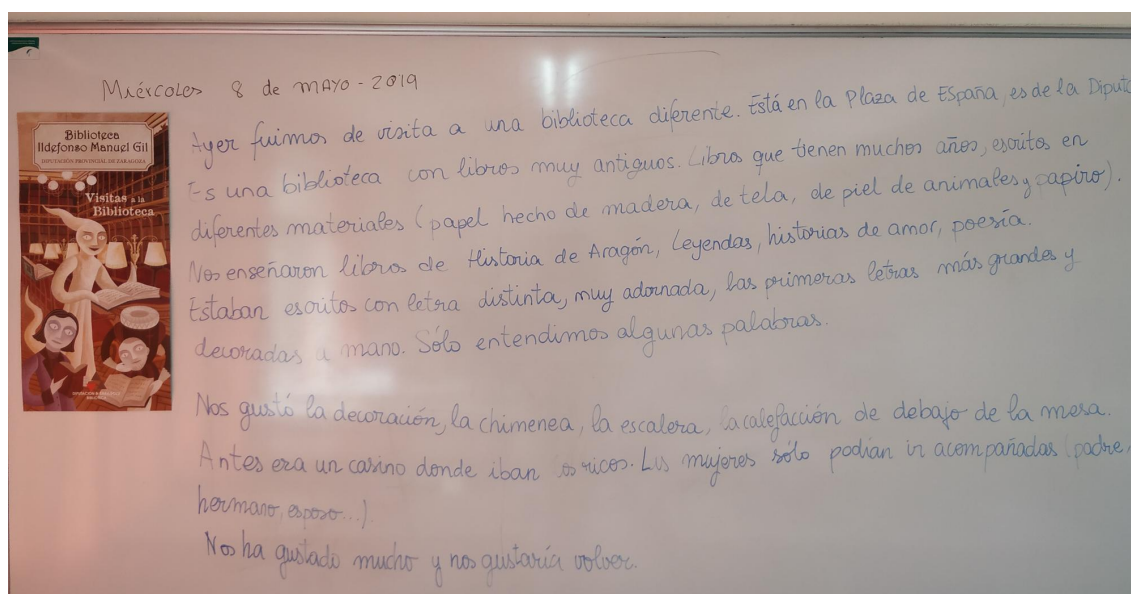 Miércoles 8 de mayo - 2019
Biblioteca
Ildefonso Manuel Gil
DIPUTACIÓN PROVINCIAL DE ZARAGOZA
Visitas a la
Biblioteca
Ayer fuimos de visita a una biblioteca diferente. Está en la Plaza de España, es de la Diputa
Es una biblioteca con libros muy antiguos. Libros que tienen muchos años, escritos en
diferentes materiales (papel hecho de madera, de tela, de piel de animales y papiro).
Nos enseñaron libros de Historia de Aragón, Leyendas, historias de amor, poesía.
Estaban escritos con letra distinta, muy adornada, las primeras letras más grandes y
decoradas a mano. Sólo entendimos algunas palabras.
Nos gustó la decoración, la chimenea, la escalera, la calefacción de debajo de la mesa.
Antes era un casino donde iban los ricos. Las mujeres sólo podían ir acompañadas (padre,
hermano, esposo...)
Nos ha gustado mucho y nos gustaría volver.